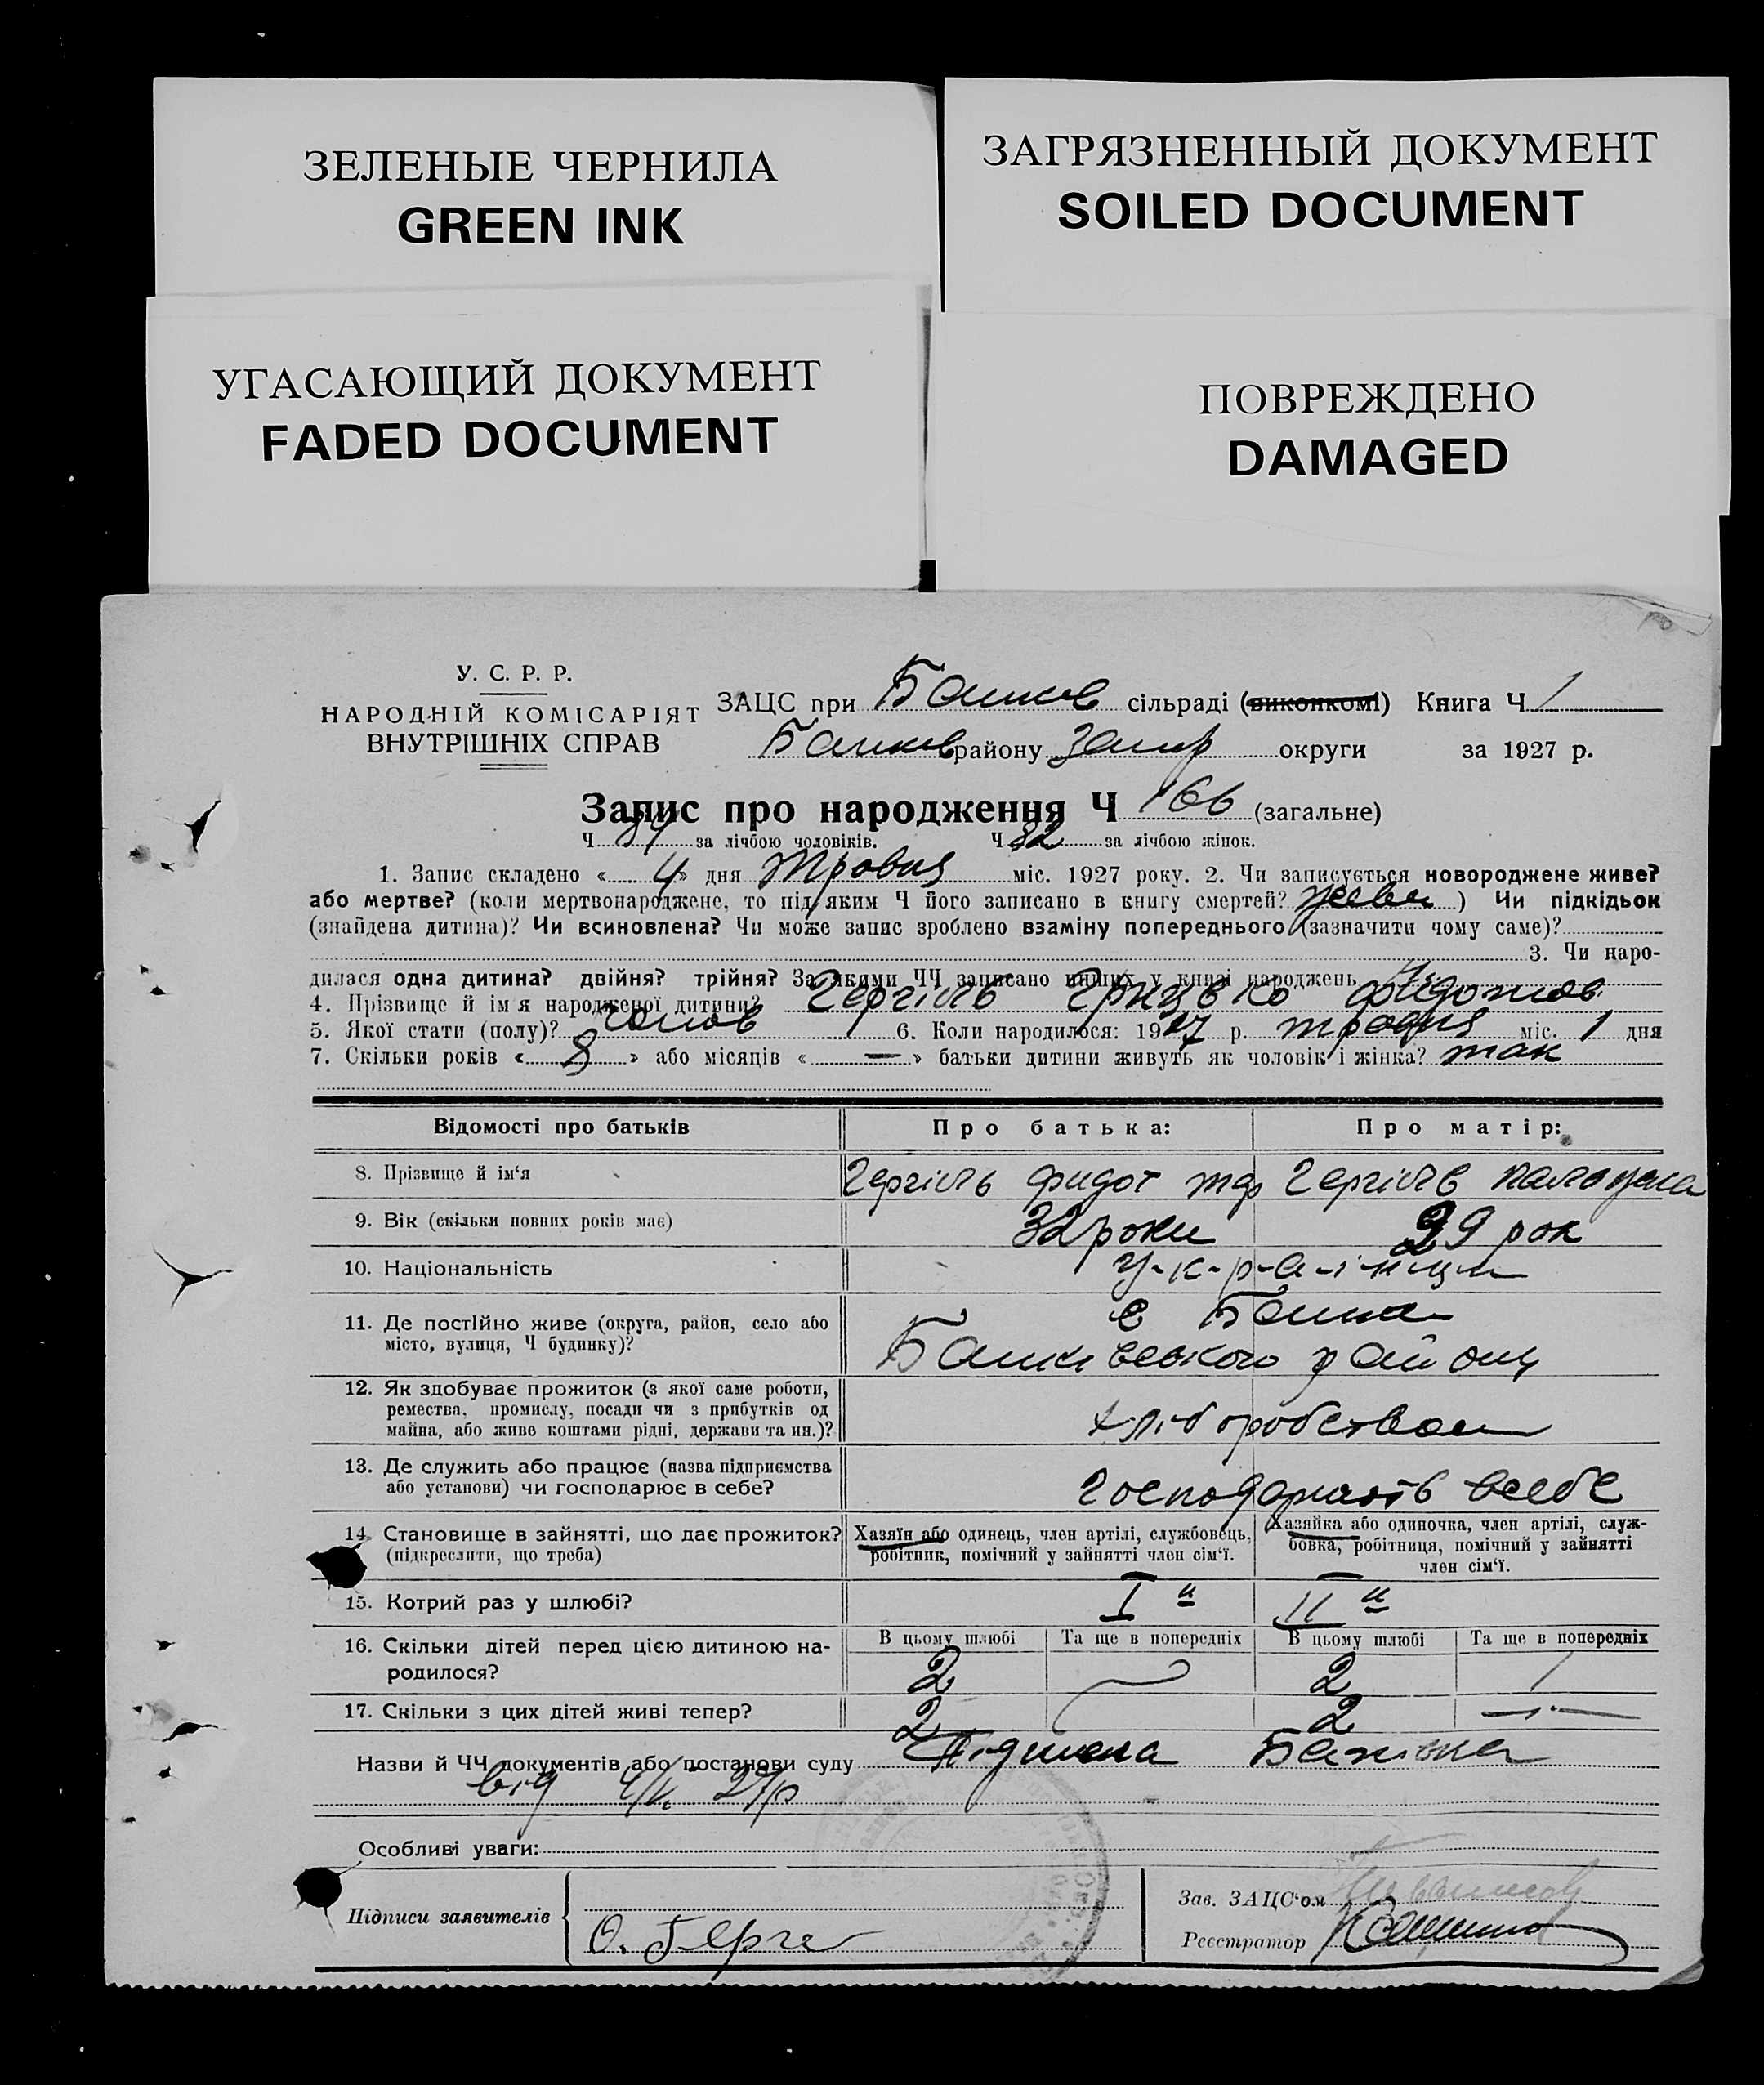 ЗЕЛЕНЫЕ ЧЕРНИЛА
GREEN INK
ЗАГРЯЗНЕННЫЙ ДОКУМЕНТ
SOILED DOCUMENT
УГАСАЮЩИЙ ДОКУМЕНТ
FADED DOCUMENT
ПОВРЕЖДЕНО
DAMAGED
У. С. Р. Р.
НАРОДНІЙ КОМІСАРІЯТ
ВНУТРІШНІХ СПРАВ
ЗАЦС при сільраді (виконкомі) Книга Ч 1
району Запор округи за 1927 р.
Запис про народження Ч 166 (загальне)
Ч 84 за лічбою чоловіків. Ч 82 за лічбою жінок.
1. Запис складено « 4 » дня травня міс. 1927 року. 2. Чи записується новороджене живе?
або мертве? (коли мертвонароджене, то під яким Ч його записано в книгу смертей? живе ) Чи підкідьок
(знайдена дитина)? Чи всиновлена? Чи може запис зроблено взаміну попереднього (зазначити чому саме)?
3. Чи наро-
дилася одна дитина? двійня? трійня? За якими ЧЧ записано инших у книзі народжень
4. Прізвище й ім‘я народженої дитини? Грицько Фидотов
5. Якої стати (полу)? чолов 6. Коли народилося: 1927 р. травня міс. 1 дня
7. Скільки років « 8 » або місяців « — » батьки дитини живуть як чоловік і жінка? так
Відомості про батьків Про батька: Про матір:
8. Прізвище й ім‘я Фидот
9. Вік (скільки повних років має) 32 роки 29 рок
10. Національність у-к-р-а-ї-нци
11. Де постійно живе (округа, район, село або
місто, вулиця, Ч будинку)?
с
району
12. Як здобуває прожиток (з якої саме роботи,
ремества, промислу, посади чи з прибутків од
майна, або живе коштами рідні, держави та ин.)?
хліборобством
13. Де служить або працює (назва підприємства
або установи) чи господарює в себе?
господарюють в себе
14. Становище в зайнятті, що дає прожиток?
(підкреслити, що треба)
Хазяїн або одинець, член артілі, службовець,
робітник, помічний у зайнятті член сім‘ї.
Хазяйка або одиночка, член артілі, служ-
бовка, робітниця, помічний у зайнятті
член сім‘ї.
15. Котрий раз у шлюбі? I й II й
16. Скільки дітей перед цією дитиною на-
родилося?
В цьому шлюбі Та ще в попередніх В цьому шлюбі Та ще в попередніх
2 2 1
17. Скільки з цих дітей живі тепер? 2 2 —
Назви й ЧЧ документів або постанови суду
від 4/V 27р
Особливі уваги:
Підписи заявителів
О.
Зав. ЗАЦС‘ом
Реєстратор